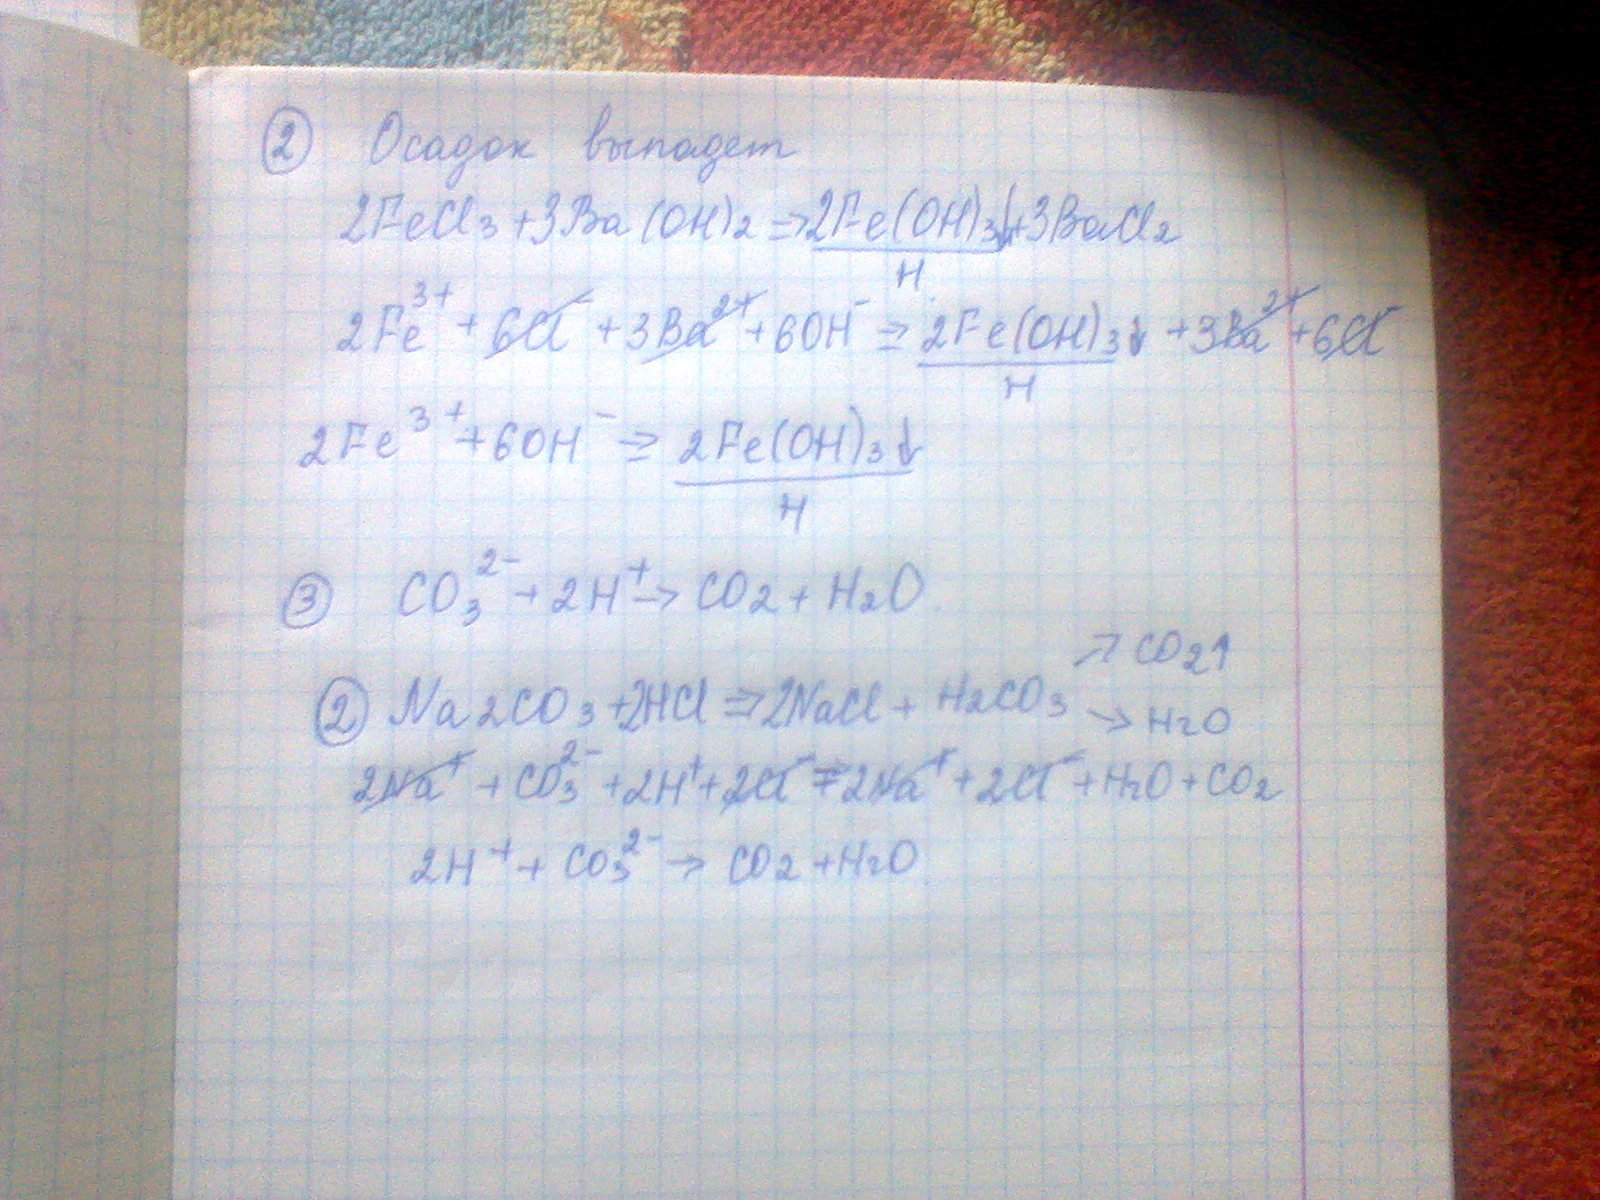 ② Осадок выпадет
2FeCl₃ + 3Ba(OH)₂ ⇒ 2Fe(OH)₃↓ + 3BaCl₂
Н
2Fe³⁺ + 6Cl⁻ + 3Ba²⁺ + 6OH⁻ ⇒ 2Fe(OH)₃↓ + 3Ba²⁺ + 6Cl⁻
Н
2Fe³⁺ + 6OH⁻ ⇒ 2Fe(OH)₃↓
Н
③ CO₃²⁻ + 2H⁺ → CO₂ + H₂O
↗ CO₂↑
② Na₂CO₃ + 2HCl ⇒ 2NaCl + H₂CO₃ ↘ H₂O
2Na⁺ + CO₃²⁻ + 2H⁺ + 2Cl⁻ ⇒ 2Na⁺ + 2Cl⁻ + H₂O + CO₂
2H⁺ + CO₃²⁻ → CO₂ + H₂O